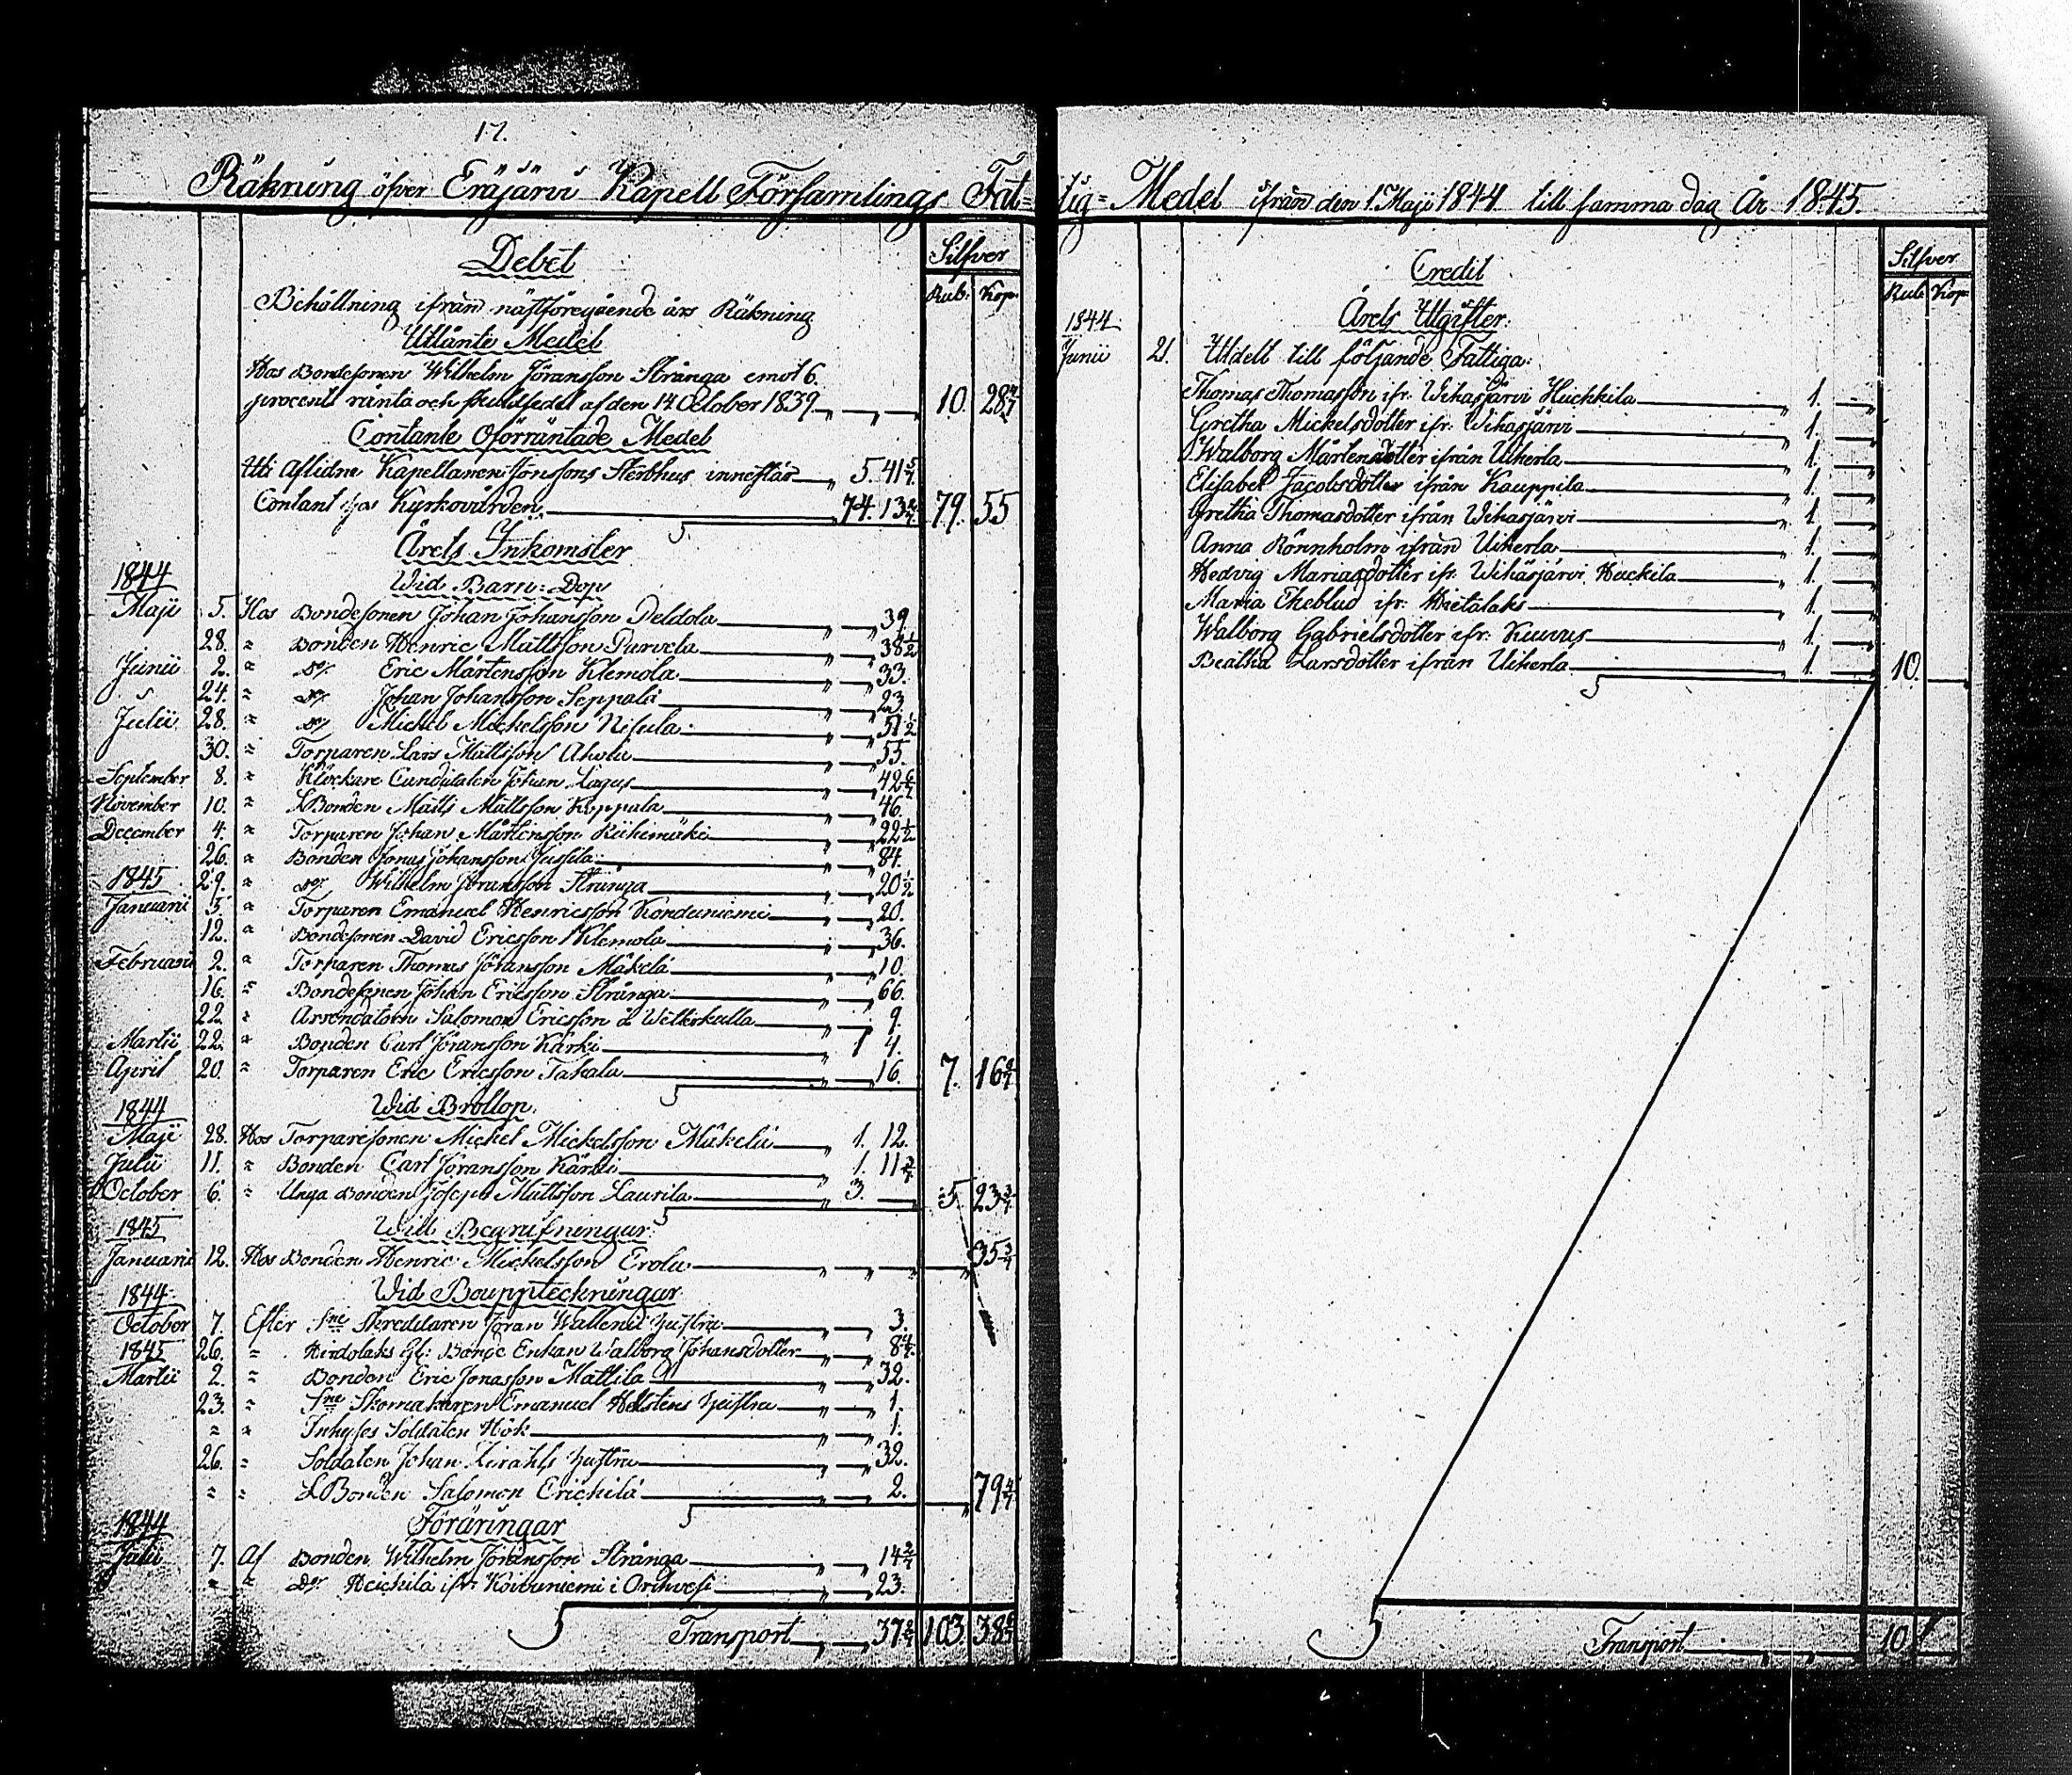 17.
Räkning öfver Eräjärvi Kapell Församlings Fat=
Debet
Silfver
Rub. Kop.
Behållning ifrån näst föregående års Räkning
Utlånte Medel
Hos Bondesonen Wilhelm Jöransson Stränga emot 6.
procent ränta och skuldsedel af den 14 October 1839. „ 10. 28 4/7
Contante Oförräntade Medel
Uti Aflidne Kapellanen Jonssons Sterbhus innestår „ 5. 41 5/7
Contant hos Kyrkovärden 74. 13 2/7 79. 55
Årets Inkomster
1844
Wid Barn=Dop
Maji 5. Hos Bondesonen Johan Johansson Deldola „ 39.
28. " Bonden Henric Mattsson Purvela „ 38 1/2
Junii 2. " Do Eric Mårtensson Klemola „ 33.
24. " Do Johan Johansson Seppälä „ 23.
Julii 28. " Do Michel Michelsson Nisula „ 51 1/2
30. " Torparen Lars Mattsson Ahola „ 55.
September 8. " Klockare Candidaten Johan Lagus „ 42 6/7
November 10. " LBonden Matts Mattsson Koppala „ 46.
December 4. " Torparen Johan Mårtensson Riihimäki „ 22 1/2
26. " Bonden Jonas Johansson Jussila „ 84.
1845
29. " Do Wilhelm Jöransson Stränga „ 20 1/2
Januarii 5. " Torparen Emanuel Henricsson Konduniemi „ 20.
12. " Bondesonen David Ericsson Klemola „ 36.
Februarii 2. " Torparen Thomas Jöransson Mäkelä „ 10.
16. " Bondesonen Johan Ericsson Stränga „ 66.
22. " Arrendatorn Salomon Ericsson å Wetterkulla „ 9.
Martii 22. " Bonden Carl Jöransson Kärki „ 4.
April 20. " Torparen Eric Ericsson Takala „ 16. 7. 16 6/7
Wid Bröllop.
1844
Maji 28. Hos Torparesonen Michel Michelsson Mäkelä 1. 12.
Julii 11. " Bonden Carl Jöransson Kärki 1. 11 3/7
October 6. " Unga Bonden Joseph Mattsson Laurila 3. 5. 23 3/7
1845
Wid Begrafningar
Januarii 12. Hos Bonden Henric Michelsson Erola „ 35 3/7
1844
Wid Bouppteckningar
October 7. Efter Sne Skreddaren Jöran Wallenii hustru „ 3.
1845
26. " Hirdolaks Gl: Bonde Enkan Walborg Johansdotter „ 8 4/7
Martii 2. " Bonden Eric Jonasson Mattila „ 32.
23. " Sne Skomakaren Emanuel Hellstens hustru „ 1.
" " Inhyses Soldaten Hök „ 1.
26. " Soldaten Johan hustru „ 32.
" " LBonden Salomon Erickilä „ 2. 79 4/7
Föräringar
1844
Julii 7. Af Bonden Wilhelm Jöransson Stränga „ 14 2/7
" " Do Heickilä ifr: Koivuniemi i Orihvesi „ 23.
Transport „ 37 2/7 103. 38 6/7
tig=Medel ifrån den 1. Maji 1844 till samma dag År 1845.
Credit
Silfver
Rub Kop
Årets Utgifter:
1844
Junii 21. Utdelt till följande Fattiga:
Thomas Thomasson ifr: Wihasjärvi Huchkila „ 1.
Gretha Mickelsdotter ifr: Wihasjärvi „ 1.
Walborg Mårtensdotter ifrån Uiherla „ 1.
Elisabet Jacobsdotter ifrån Kauppila „ 1.
Gretha Thomasdotter ifrån Wihasjärvi „ 1.
Anna Rönnholm ifrån Uiherla „ 1.
Hedvig Mariasdotter ifr: Wihäsjärvi Huckila „ 1.
Maria Theblud ifr: Hietalaks „ 1.
Walborg Gabrielsdotter ifr: Kuuvus „ 1.
Beatha Larsdotter ifrån Uiherla „ 1. 10.
Transport 10